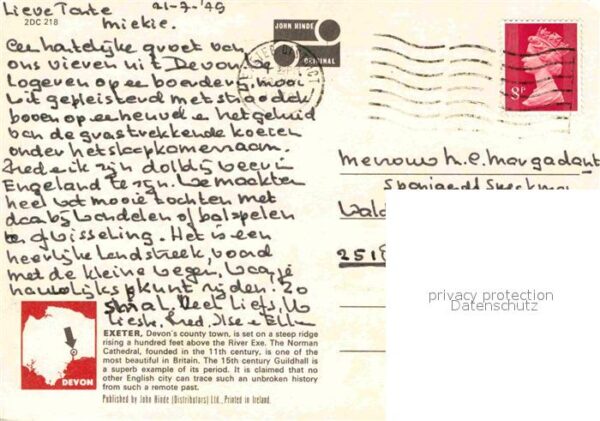 Lieve Tante
Miekie.
21-7-'79
2DC 218
JOHN HINDE
ORIGINAL
8P
Een hartelijke groet van
ons vieren uit Devon. We
logeren op een boerderij mooi
wit gepleisterd met strodak
boven op een heuvel en het geluid
van de grastrekkende koeien
onder het slaapkamerraam.
Frederik zijn dolblij weer in
Engeland te zijn. We maakten
heel wat mooie tochten met
daarbij wandelen of balspelen
en afwisseling. Het is een
heerlijke landstreek, vooral
met de kleine wegen. Waar je
nauwelijks kunt rijden! Zo
smal. Veel liefs,
Lieske, Fred, Ilse + Ellen
Mevrouw M.C. Morgadant
Wald
2518
privacy protection
Datenschutz
DEVON
EXETER, Devon's county town, is set on a steep ridge
rising a hundred feet above the River Exe. The Norman
Cathedral, founded in the 11th century, is one of the
most beautiful in Britain. The 15th century Guildhall is
a superb example of its period. It is claimed that no
other English city can trace such an unbroken history
from such a remote past.
Published by John Hinde (Distributors) Ltd., Printed in Ireland.